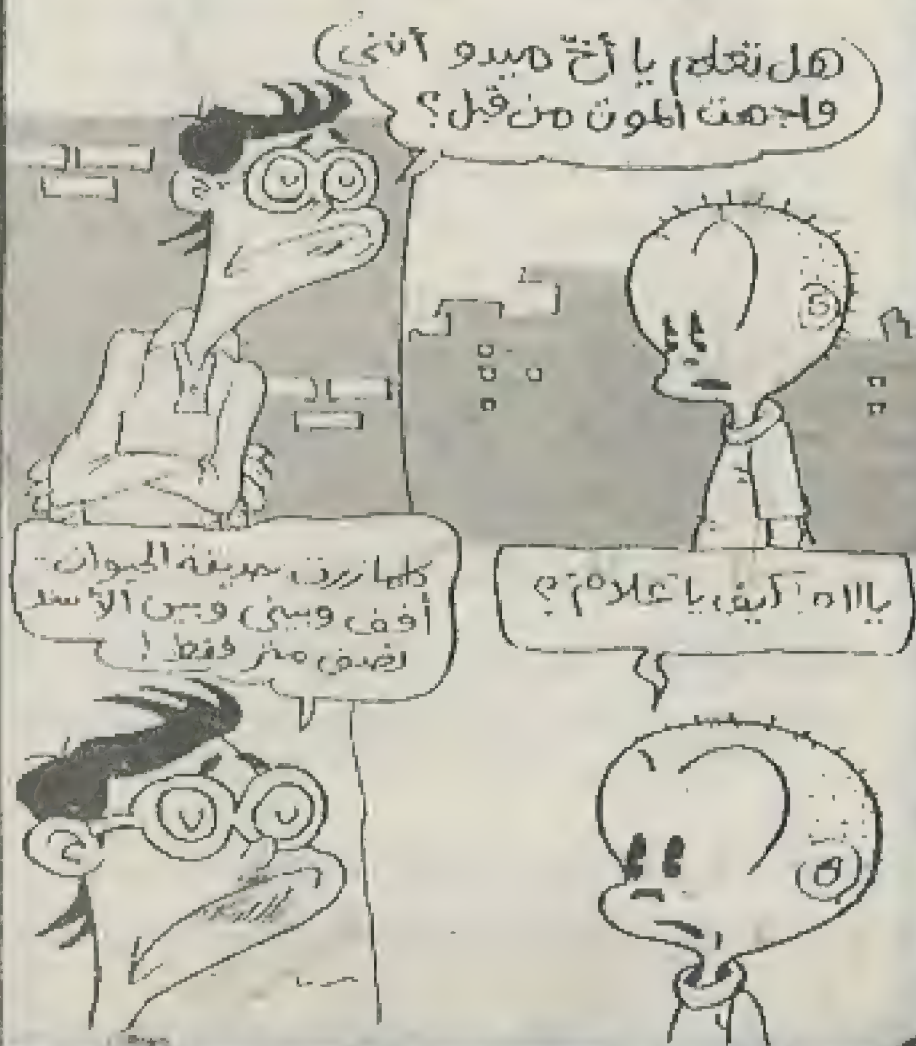 هل تعلم يا أخ ميدو أنني
واجهت الموت من قبل؟
يااا ه! كيف يا علام؟
كلما زرت حديقة الحيوان
أقف وبيني وبين الأسد
نصف متر فقط!